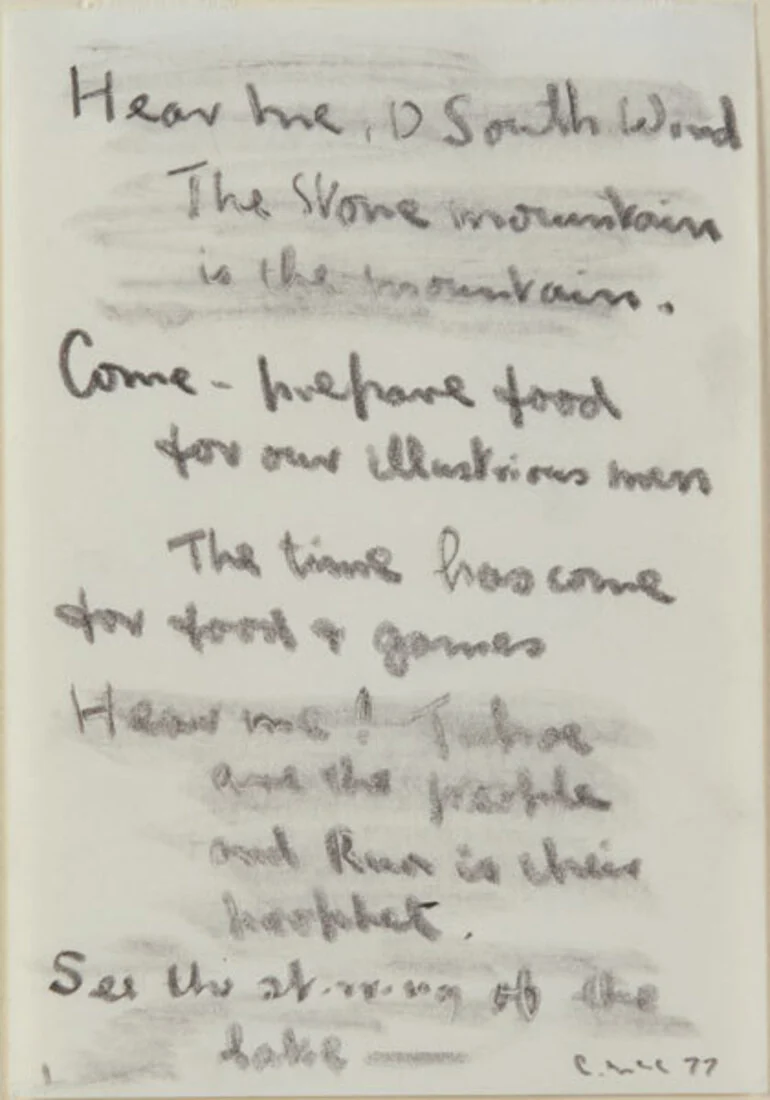 Hear me, O South Wind
The Stone mountain
is the mountain.
Come - prepare food
for our illustrious men
The time has come
for food & games
Hear me! Tuhoe
are the people
and Rua is their
prophet.
See the stirring of the
lake —
C. McC 77